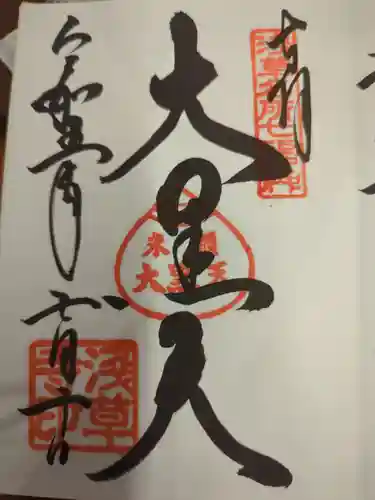 奉拝
浅草名所七福神
大黒天
米櫃
大黒天
令和五年
七月二十日
浅草
寺印